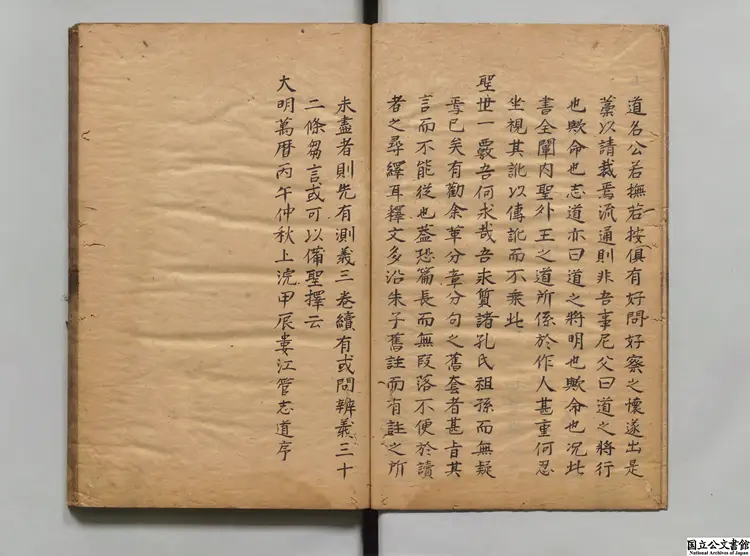 道名公若撫若按俱有好問好察之懷遂出是
藁以請裁焉流通則非吾事尼父曰道之將行
也歟命也志道亦曰道之將明也歟命也况此
書全闡内聖外王之道所係於作人甚重何忍
坐視其訛以傳訛而不乘此
聖世一覈吾何求哉吾求質諸孔氏祖孫而無疑
焉已矣有勸余革分章分句之舊套者甚旨其
言而不能從也蓋恐篇長而無段落不便於讀
者之尋繹耳釋文多沿朱子舊註而有註之所
未盡者則先有測義三卷續有或問辨義三十
二條芻言或可以備聖擇云
大明萬曆丙午仲秋上浣甲辰婁江管志道序
国立公文書館
National Archives of Japan